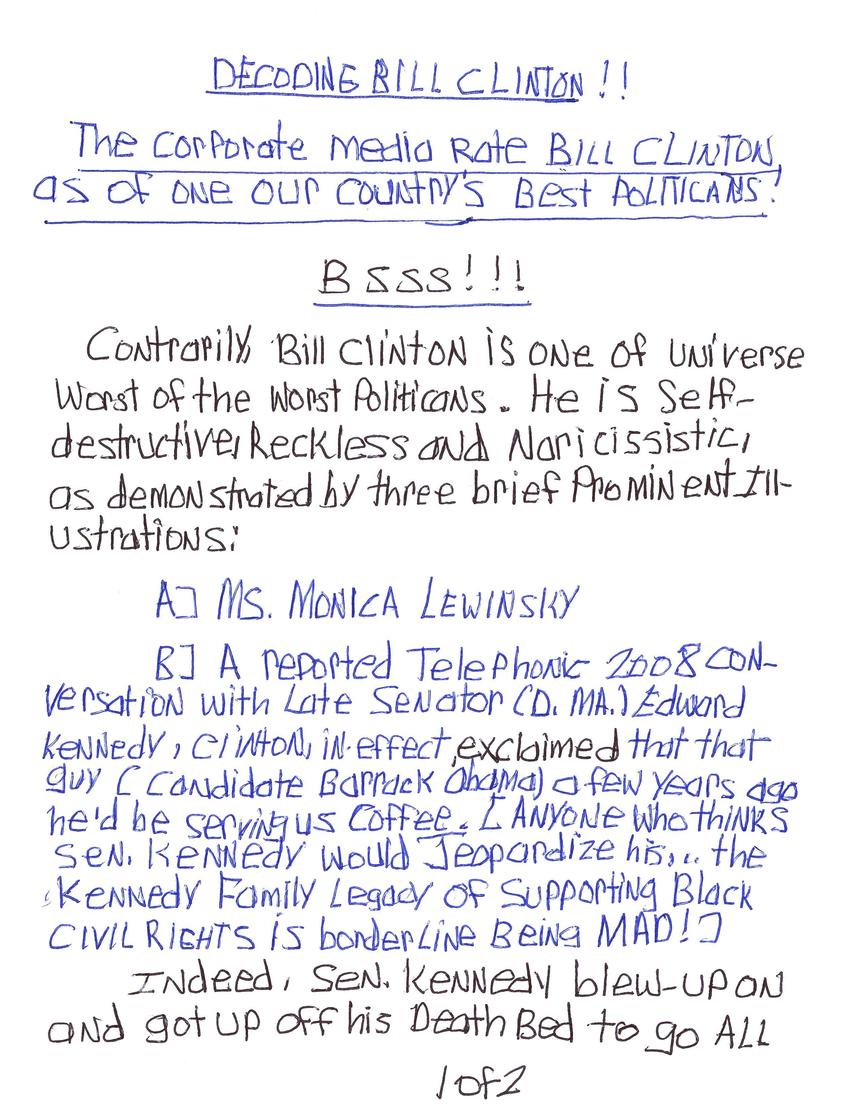 DECODING BILL CLINTON!!
The Corporate Media Rate BILL CLINTON,
as of one our Country's Best POLITICANS!
BSSS!!!
Contrarily, Bill Clinton is one of universe
Worst of the Worst Politicans. He is Self-
destructive, Reckless and Naricissistic,
as demonstrated by three brief Prominent Ill-
ustrations:
A] MS. MONICA LEWINSKY
B] A reported Telephonic 2008 CON-
versation with Late Senator (D. MA.) Edward
Kennedy, Clinton, in effect, exclaimed that that
guy (Candidate Barrack Obama) a few years ago
he'd be serving us Coffee. [ANYONE Who thinks
Sen. Kennedy would Jeopardize his,.. the
Kennedy Family Legacy of Supporting Black
CIVIL RIGHTS is borderLine Being MAD!]
Indeed, Sen. Kennedy blew-up on
and got up off his Death Bed to go ALL
1 of 2